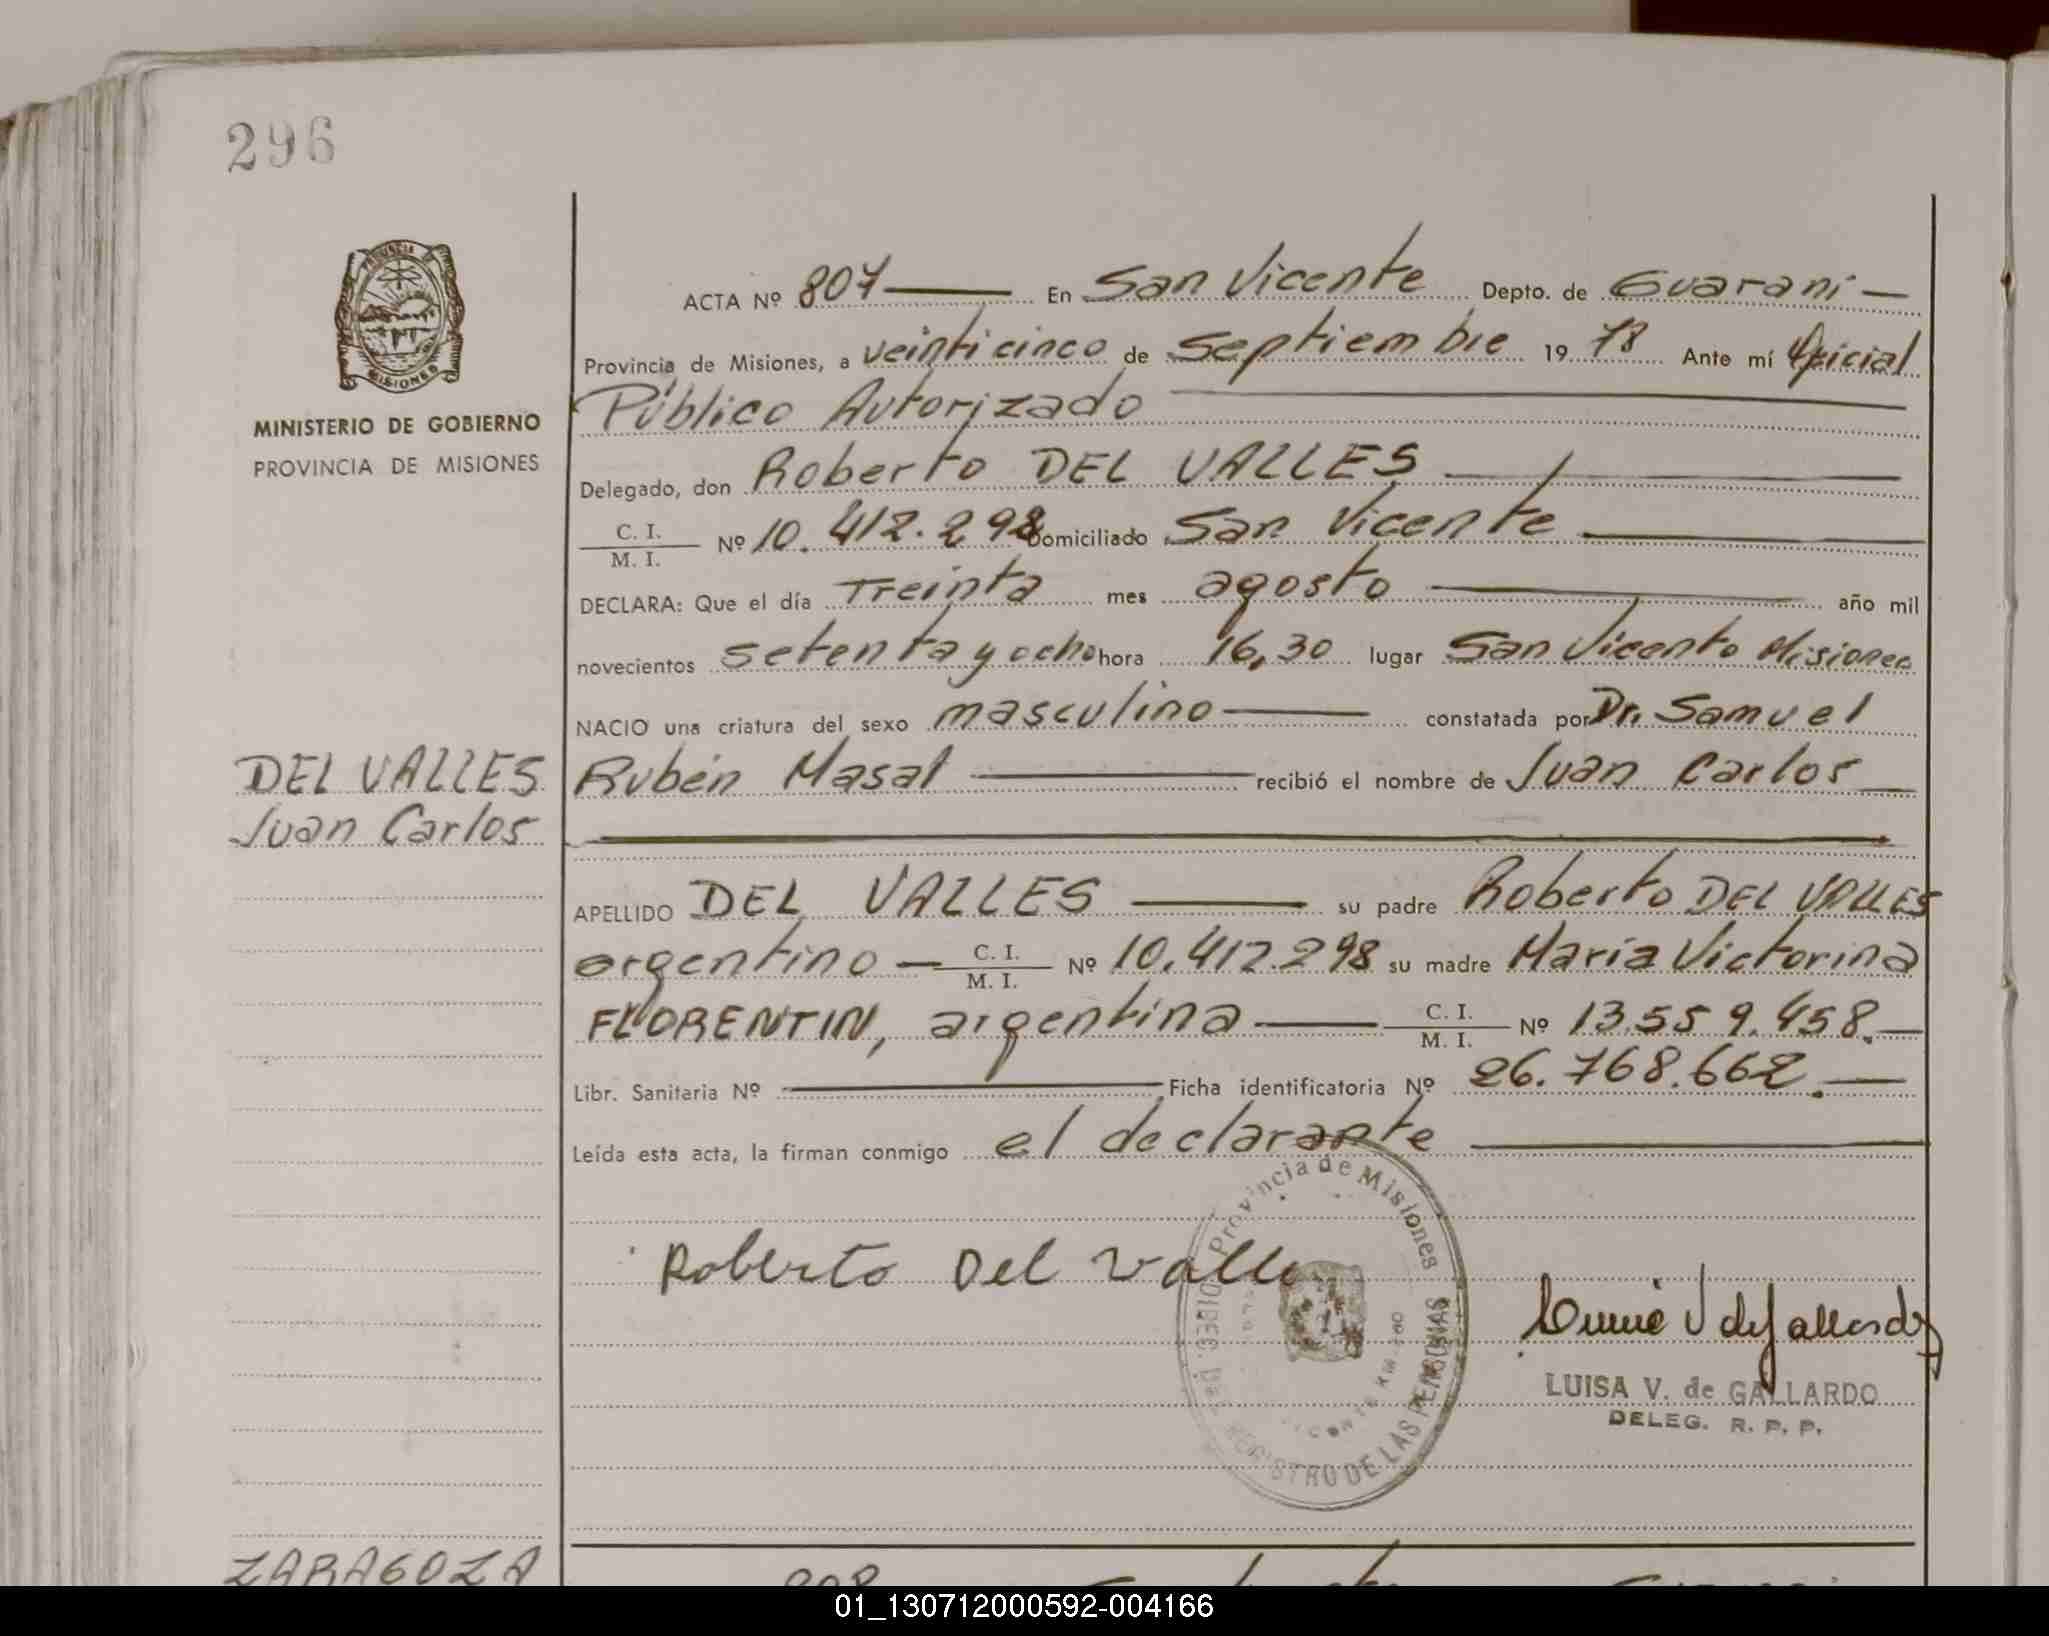 296
PROVINCIA DE
MISIONES
MINISTERIO DE GOBIERNO
PROVINCIA DE MISIONES
ACTA Nº 807 En San Vicente Depto. de Guarani
Provincia de Misiones, a veinticinco de septiembre 19 78 Ante mí Oficial
Público Autorizado
Delegado, don Roberto DEL VALLES
C. I.
M. I. Nº 10.412.298 Domiciliado San Vicente
DECLARA: Que el día Treinta mes agosto año mil
novecientos setenta y ocho hora 16,30 lugar San Vicente Misiones
NACIO una criatura del sexo masculino constatada por Dr. Samuel
Rubén Masal recibió el nombre de Juan Carlos
DEL VALLES
Juan Carlos
APELLIDO DEL VALLES su padre Roberto DEL VALLES
argentino C. I.
M. I. Nº 10.412.298 su madre María Victorina
FLORENTIN, argentina C. I.
M. I. Nº 13.559.458.
Libr. Sanitaria Nº Ficha identificatoria Nº 26.768.662.
Leída esta acta, la firman conmigo el declarante
Provincia de Misiones
DIREC. DEL REGISTRO DE LAS PERSONAS
Roberto Del Valle
LUISA V. de GALLARDO
DELEG. R. P. P.
ZARAGOZA
808
01_130712000592-004166